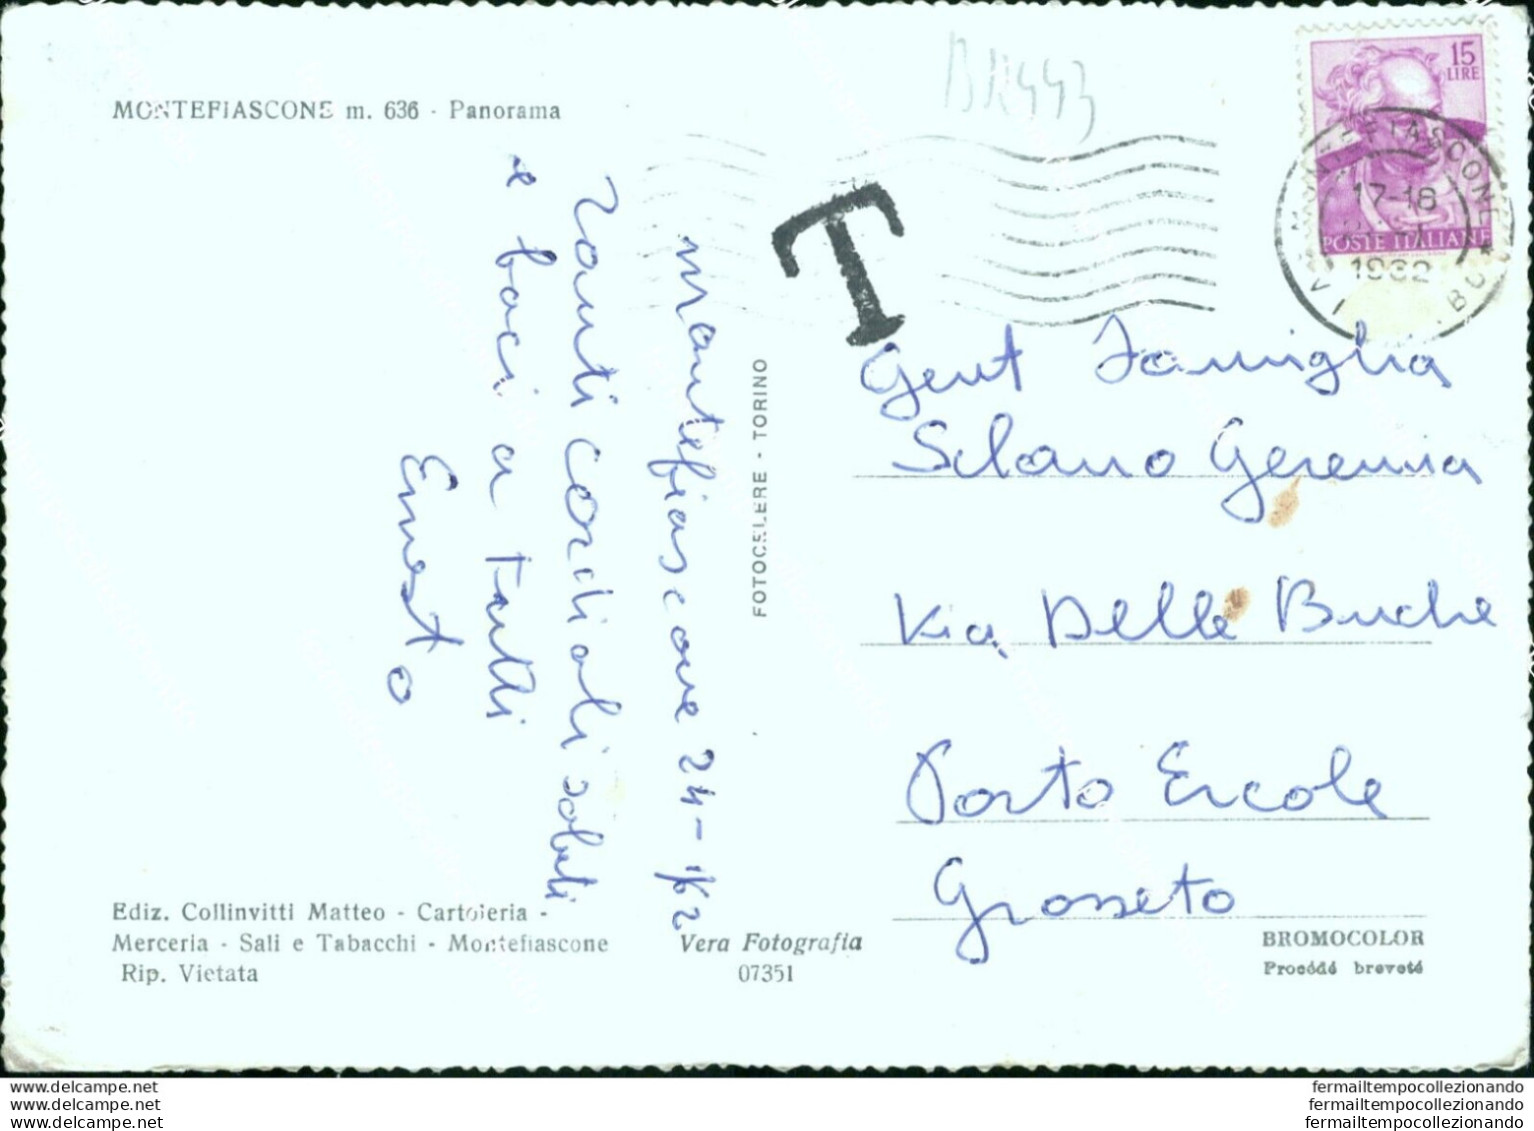 MONTEFIASCONE m. 636 - Panorama
BR443
15
LIRE
POSTE ITALIANE
MONTEFIASCONE
17-18
1962
T
Montefiascone 24-1/62
Tanti cordiali saluti
e baci a tutti
Ernesto
FOTOCELERE - TORINO
Gent Famiglia
Silano Geremia
Via Delle Buche
Porto Ercole
Grosseto
Ediz. Collinvitti Matteo - Cartoleria -
Merceria - Sali e Tabacchi - Montefiascone
Rip. Vietata
Vera Fotografia
07351
BROMOCOLOR
Procédé breveté
www.delcampe.net
www.delcampe.net
www.delcampe.net
fermailtempocollezionando
fermailtempocollezionando
fermailtempocollezionando